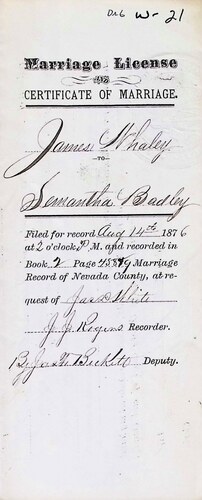 Dr6 W-21
Marriage License
AND
CERTIFICATE OF MARRIAGE.
James Whaley
—TO—
Semantha Badley
Filed for record Aug 14th 1876
at 2 o'clock, P M. and recorded in
Book 2 Page 458/9 Marriage
Record of Nevada County, at re-
quest of Jas White
J. J. Rogers Recorder.
By Jas. H. Beckett Deputy.